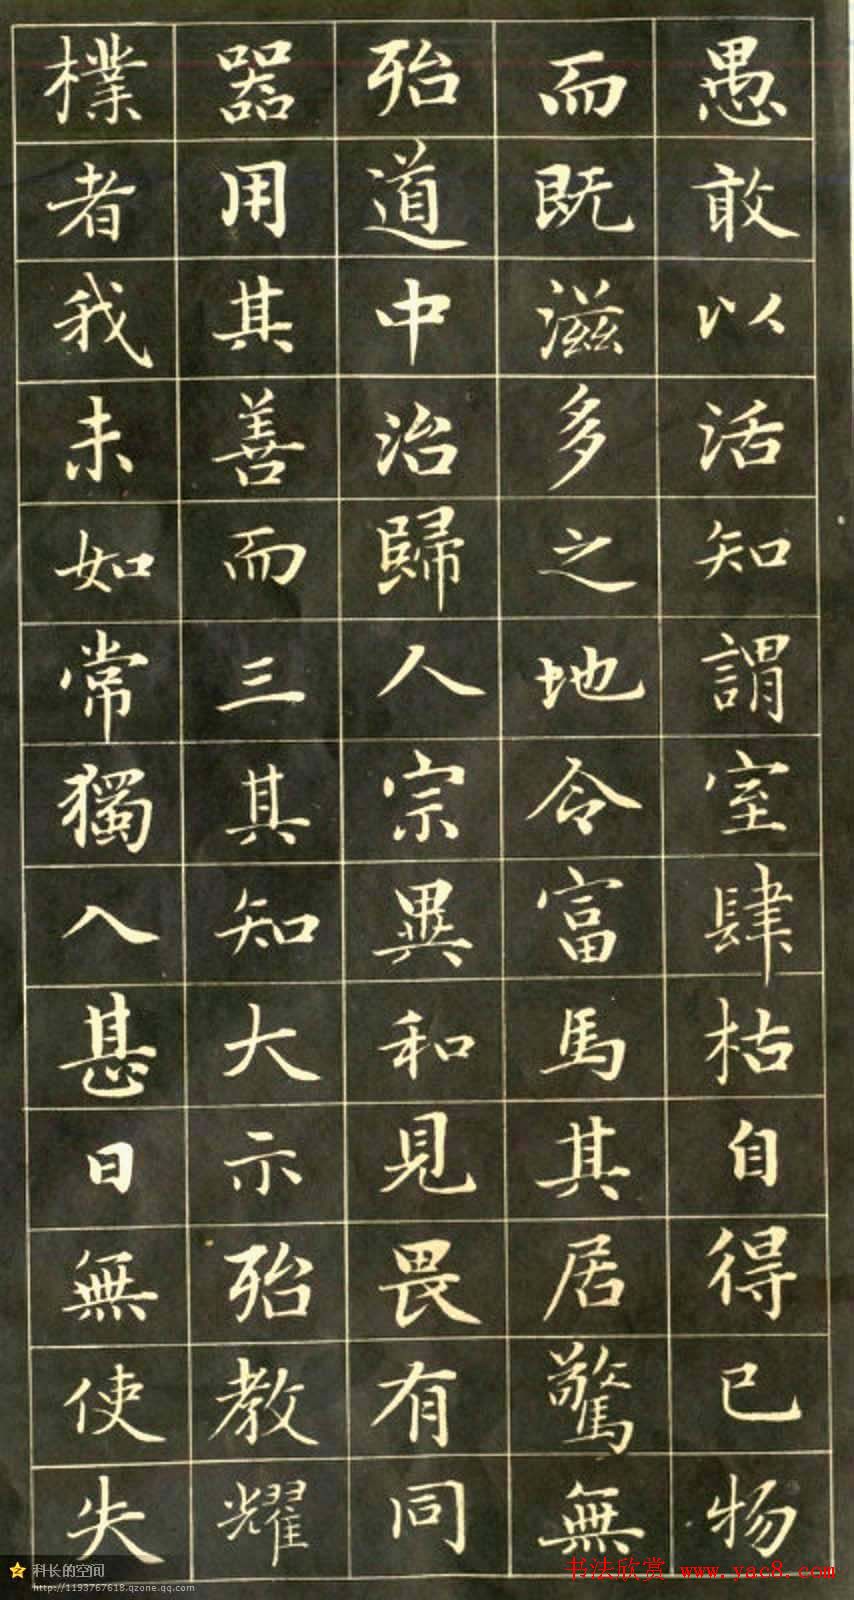 愚敢以活知謂室肆枯自得已物
而既滋多之地令富馬其居驚無
殆道中治歸人宗異和見畏有同
器用其善而三其知大示殆教耀
樸者我未如常獨入甚日無使失
科长的空间
http://1193767618.qzone.qq.com
书法欣赏 www.yac8.com